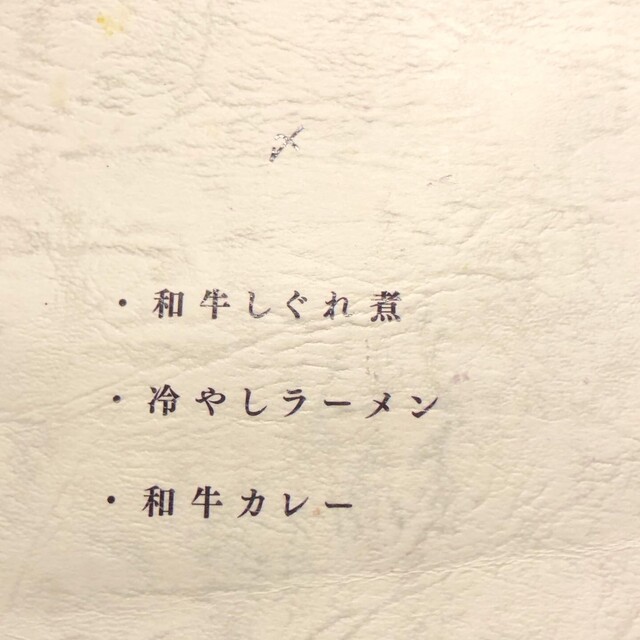 ・和牛しぐれ煮
・冷やしラーメン
・和牛カレー